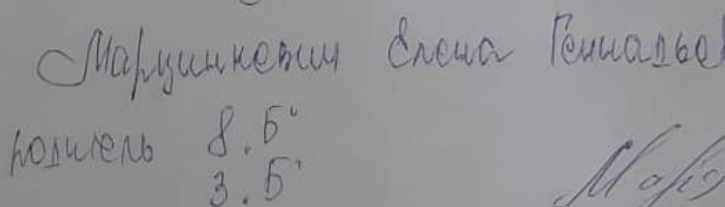 Марцинкевич Елена Геннадьев
родитель 8.Б"
3.Б"